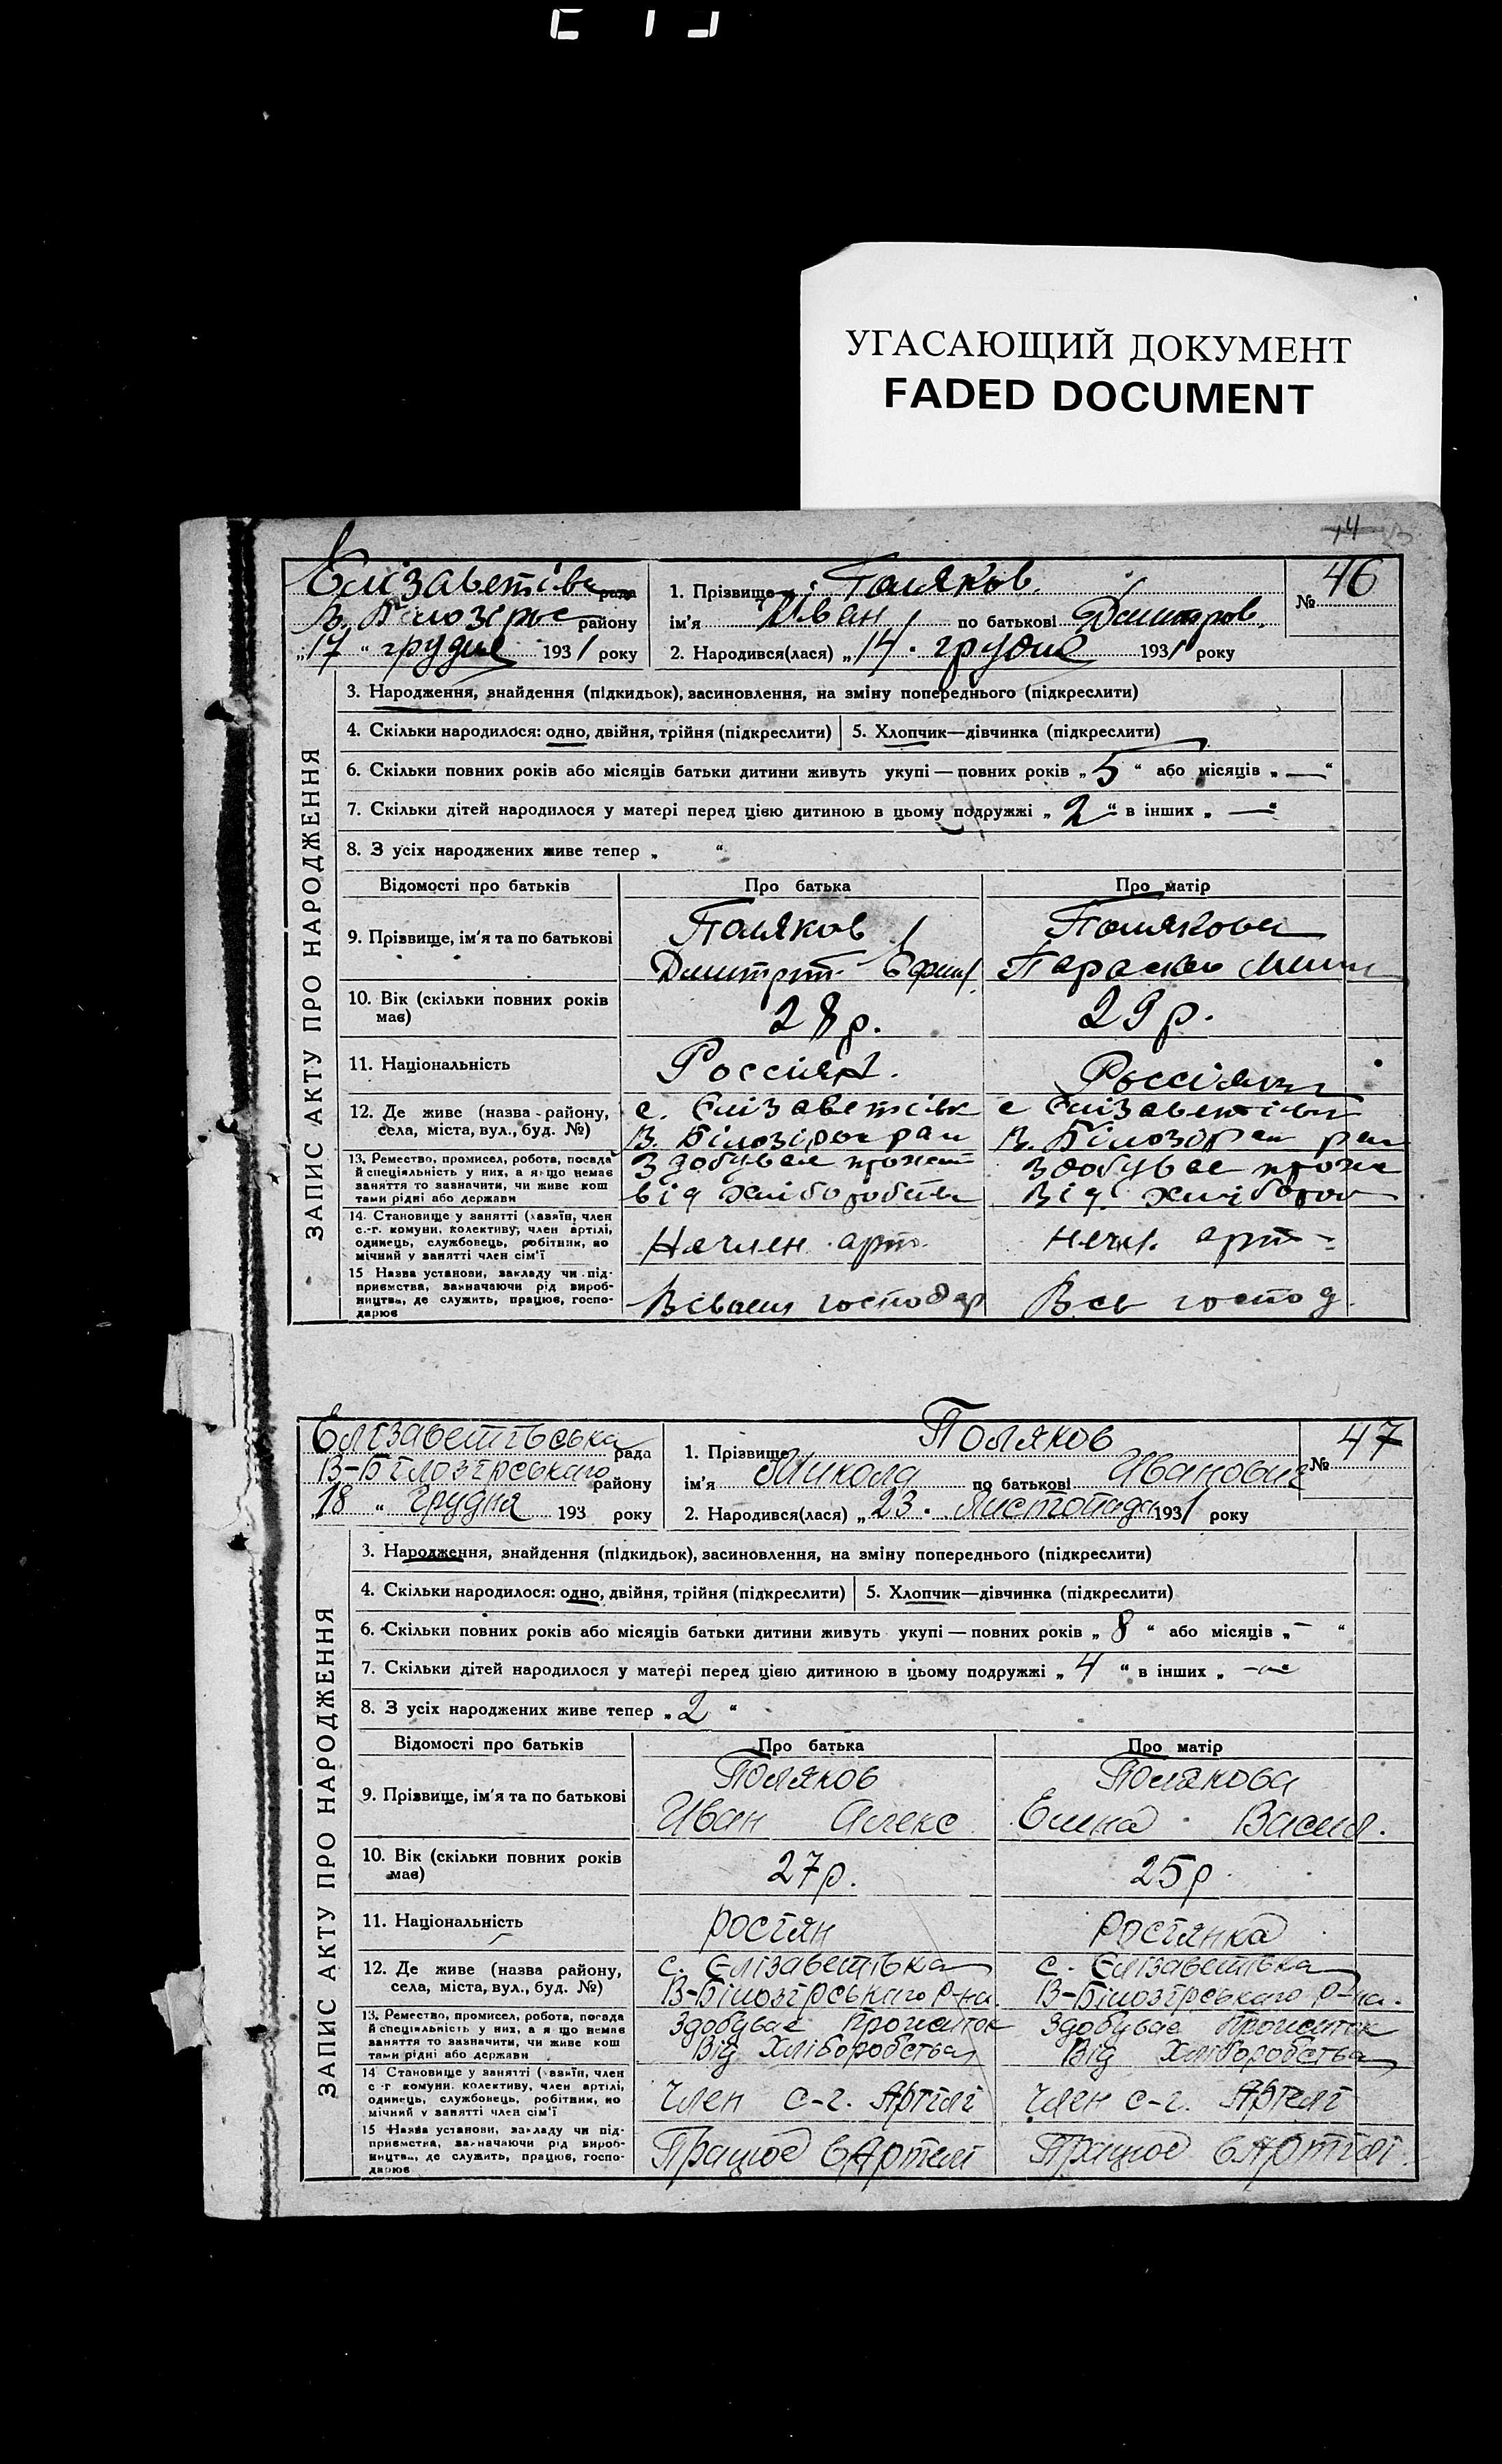 УГАСАЮЩИЙ ДОКУМЕНТ
FADED DOCUMENT
14
Єлізаветівка рада
В. Білозірс району
„17“ грудня 1931 року
1. Прізвище Поляков
ім'я Иван по батькові Дмитров.
2. Народився(лася) „14. грудня 1931 року
№ 46
ЗАПИС АКТУ ПРО НАРОДЖЕННЯ
3. Народження, знайдення (підкидьок), засиновлення, на зміну попереднього (підкреслити)
4. Скільки народилося: одно, двійня, трійня (підкреслити) 5. Хлопчик—дівчинка (підкреслити)
6. Скільки повних років або місяців батьки дитини живуть укупі — повних років „5“ або місяців „—“
7. Скільки дітей народилося у матері перед цією дитиною в цьому подружжі „2“ в інших „—“
8. З усіх народжених живе тепер „ “
Відомості про батьків Про батька Про матір
9. Прізвище, ім'я та по батькові
Поляков
Полякова
Параска
10. Вік (скільки повних років має)
28р. 29р.
11. Національність
Россиян. Россіянка
12. Де живе (назва району, села, міста, вул., буд. №)
с. Єлізаветівк с Єлізаветівк
В. Білозірс ран В. Білозір
13. Ремество, промисел, робота, посада й спеціяльність у них, а якщо немає заняття то зазначити, чи живе коштами рідні або держави
Здобувае прожит Здобувае прожи
від хліборобства Від хлібороб
14. Становище у занятті (хазяїн, член с.-г. комуни, колективу, член артілі, одинець, службовець, робітник, помічний у занятті член сім'ї
Нечлен арт. нечл. арт-
15 Назва установи, закладу чи підприємства, зазначаючи рід виробництва, де служить, працює, господарює
Всвоем господар Всв господ.
Елізаветівська рада
В-Білозірського району
„18“ Грудня 193 року
1. Прізвище Поляков
ім'я Микола по батькові Иванович
2. Народився(лася) „23. Листопада 1931 року
№ 47
ЗАПИС АКТУ ПРО НАРОДЖЕННЯ
3. Народження, знайдення (підкидьок), засиновлення, на зміну попереднього (підкреслити)
4. Скільки народилося: одно, двійня, трійня (підкреслити) 5. Хлопчик—дівчинка (підкреслити)
6. Скільки повних років або місяців батьки дитини живуть укупі — повних років „8“ або місяців „—“
7. Скільки дітей народилося у матері перед цією дитиною в цьому подружжі „4“ в інших „
8. З усіх народжених живе тепер „2“
Відомості про батьків Про батька Про матір
9. Прізвище, ім'я та по батькові
Поляков Полякова
Иван Алекс Елена Васил.
10. Вік (скільки повних років має)
27р. 25р
11. Національність
росіян росіянка
12. Де живе (назва району, села, міста, вул., буд. №)
с. Єлізаветівка с. Єлізаветівка
В-Білозірського р-на. В-Білозірського р-на.
13. Ремество, промисел, робота, посада й спеціяльність у них, а якщо немає заняття то зазначити, чи живе коштами рідні або держави
Здобувае Прожиток Здобувае Прожиток
Від Хліборобства Від Хліборобства
14 Становище у занятті (хазяїн, член с-г комуни, колективу, член артілі, одинець, службовець, робітник, помічний у занятті член сім'ї
Член с-г. Артілі Член с-г. Артелі
15 Назва установи, закладу чи підприємства, зазначаючи рід виробництва, де служить, працює, господарює
Працює в Артелі Працює в Артілі.